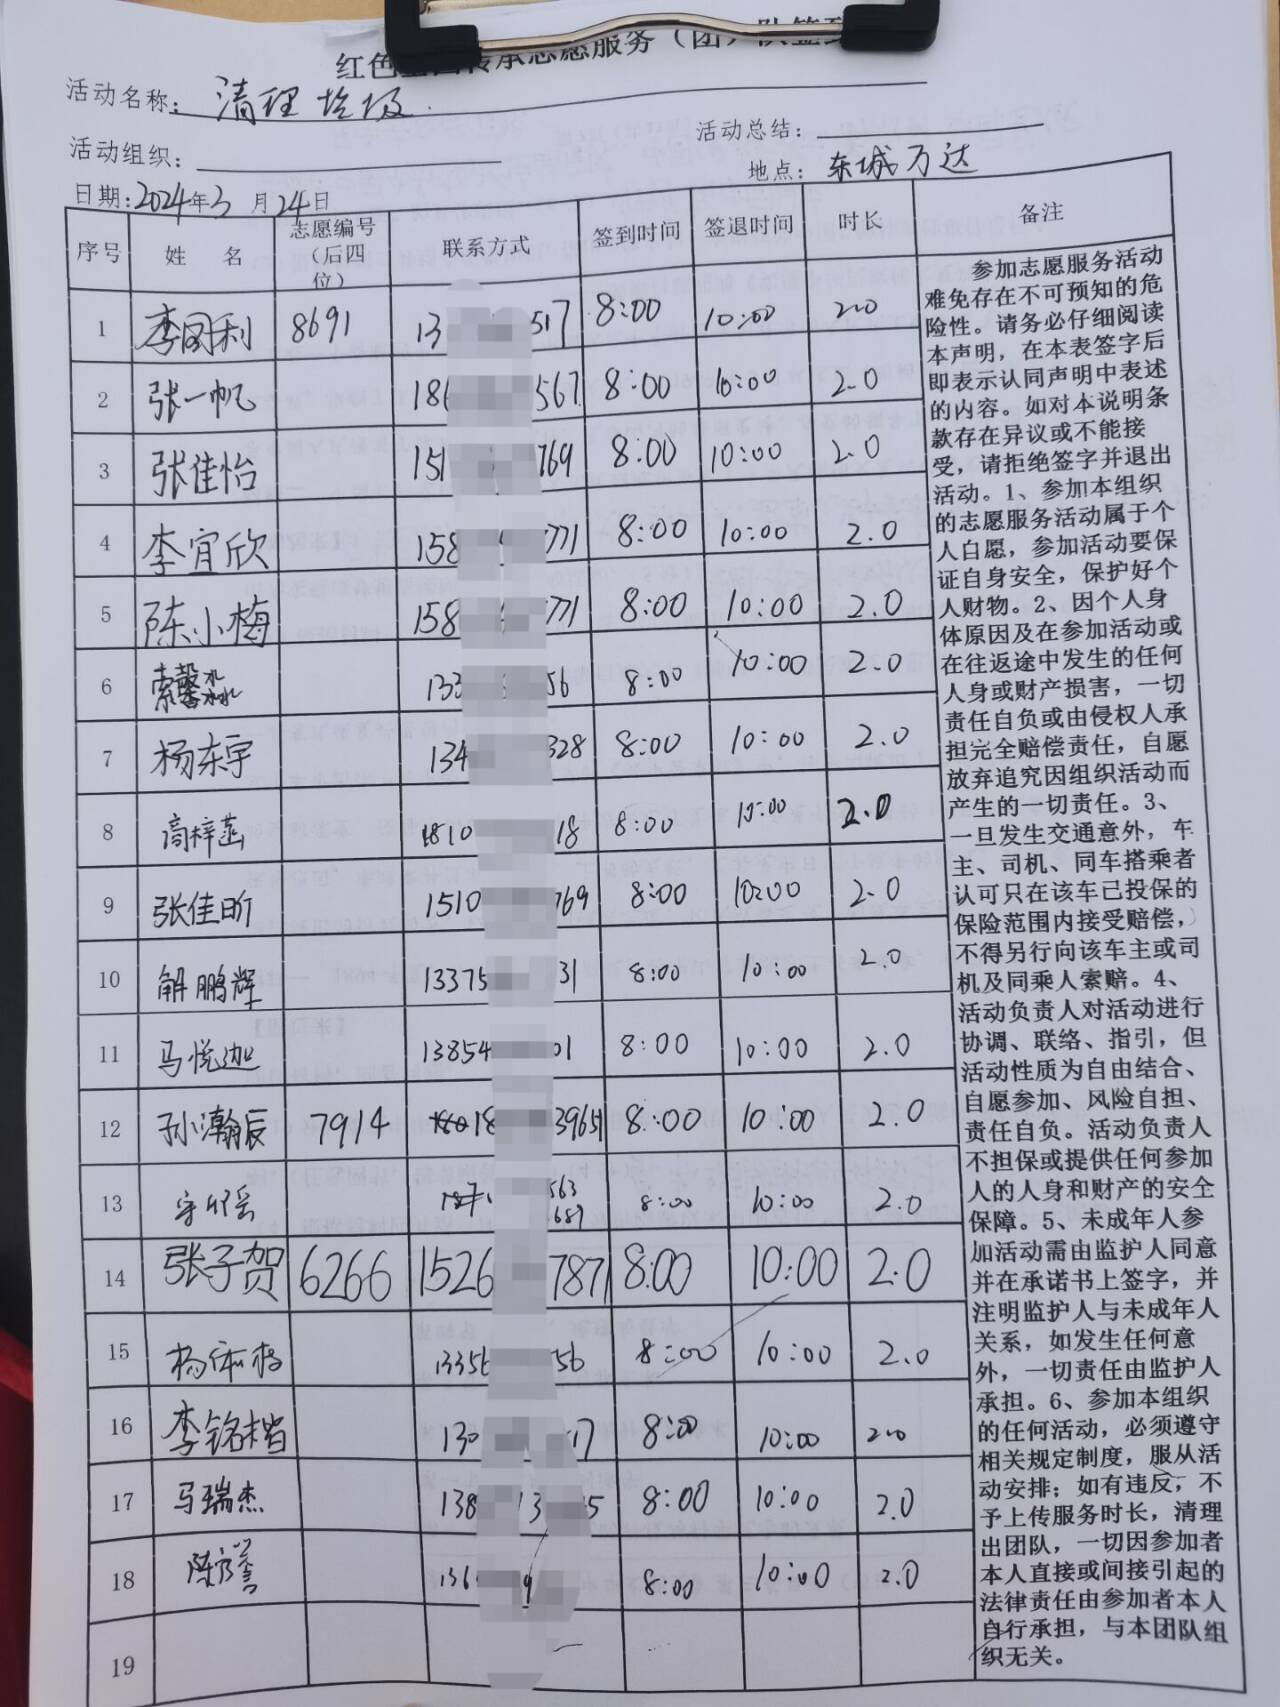 活动名称：清理垃圾
活动组织：
活动总结：
日期：2024年3月24日
地点：东城万达
序号 姓 名 志愿编号（后四位） 联系方式 签到时间 签退时间 时长 备注
1 李国利 8691 13 517 8:00 10:00 2.0
2 张一帆 186 567 8:00 10:00 2.0
3 张佳怡 151 769 8:00 10:00 2.0
4 李宜欣 158 771 8:00 10:00 2.0
5 陈小梅 158 771 8:00 10:00 2.0
6 索馨淼 133 56 8:00 10:00 2.0
7 杨东宇 134 328 8:00 10:00 2.0
8 高梓菡 1810 18 8:00 10:00 2.0
9 张佳昕 1510 769 8:00 10:00 2.0
10 解鹏辉 13375 31 8:00 10:00 2.0
11 马悦迦 13854 01 8:00 10:00 2.0
12 孙瀚辰 7914 18 8:00 10:00 2.0
13 8:00 10:00 2.0
14 张子贺 6266 1526 7871 8:00 10:00 2.0
15 13356 56 8:00 10:00 2.0
16 李铭楷 130 17 8:00 10:00 2.0
17 马瑞杰 138 8:00 10:00 2.0
18 136 8:00 10:00 2.0
19
参加志愿服务活动
难免存在不可预知的危
险性。请务必仔细阅读
本声明，在本表签字后
即表示认同声明中表述
的内容。如对本说明条
款存在异议或不能接
受，请拒绝签字并退出
活动。1、参加本组织
的志愿服务活动属于个
人自愿，参加活动要保
证自身安全，保护好个
人财物。2、因个人身
体原因及在参加活动或
在往返途中发生的任何
人身或财产损害，一切
责任自负或由侵权人承
担完全赔偿责任，自愿
放弃追究因组织活动而
产生的一切责任。3、
一旦发生交通意外，车
主、司机、同车搭乘者
认可只在该车已投保的
保险范围内接受赔偿，
不得另行向该车主或司
机及同乘人索赔。4、
活动负责人对活动进行
协调、联络、指引，但
活动性质为自由结合、
自愿参加、风险自担、
责任自负。活动负责人
不担保或提供任何参加
人的人身和财产的安全
保障。5、未成年人参
加活动需由监护人同意
并在承诺书上签字，并
注明监护人与未成年人
关系，如发生任何意
外，一切责任由监护人
承担。6、参加本组织
的任何活动，必须遵守
相关规定制度，服从活
动安排；如有违反，不
予上传服务时长，清理
出团队，一切因参加者
本人直接或间接引起的
法律责任由参加者本人
自行承担，与本团队组
织无关。